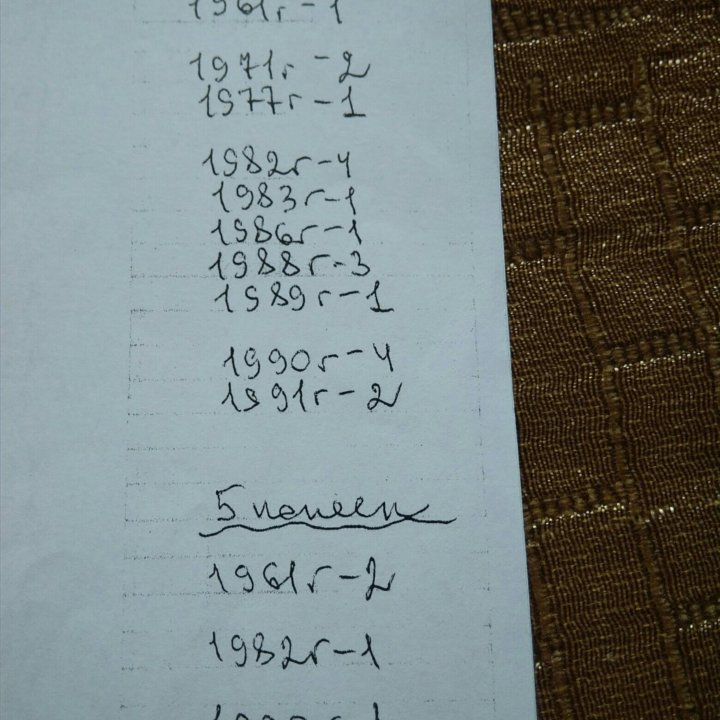 1961г-1
1971г-2
1977г-1
1982г-4
1983г-1
1986г-1
1988г-3
1989г-1
1990г-4
1991г-2
5 копеек
1961г-2
1982г-1